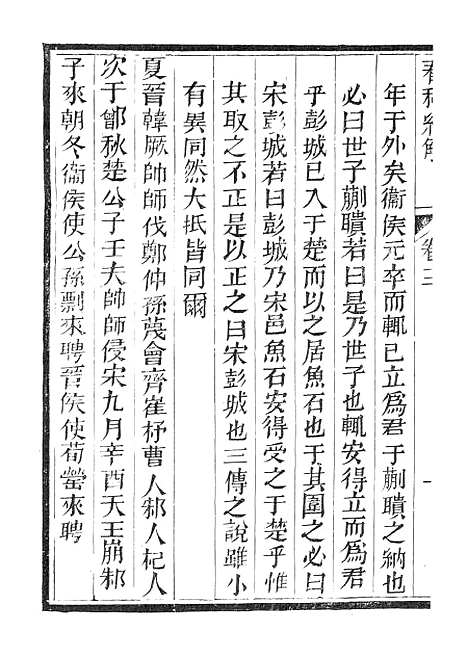 年于外矣衞侯元卒而輒已立爲君于蒯聵之納也
必曰世子蒯聵若曰是乃世子也輒安得立而爲君
乎彭城已入于楚而以之居魚石也于其圍之必曰
宋彭城若曰彭城乃宋邑魚石安得受之于楚乎惟
其取之不正是以正之曰宋彭城也三傳之說雖小
有異同然大抵皆同爾
夏晉韓厥帥師伐鄭仲孫蔑會齊崔杼曹人邾人杞人
次于鄫秋楚公子壬夫帥師侵宋九月辛酉天王崩邾
子來朝冬衞侯使公孫剽來聘晉侯使荀罃來聘